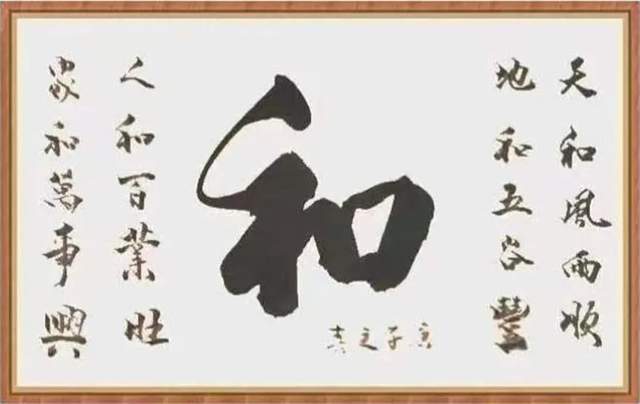 天和風雨順
地和五谷豐
和
庚子之
人和百業旺
家和萬事興